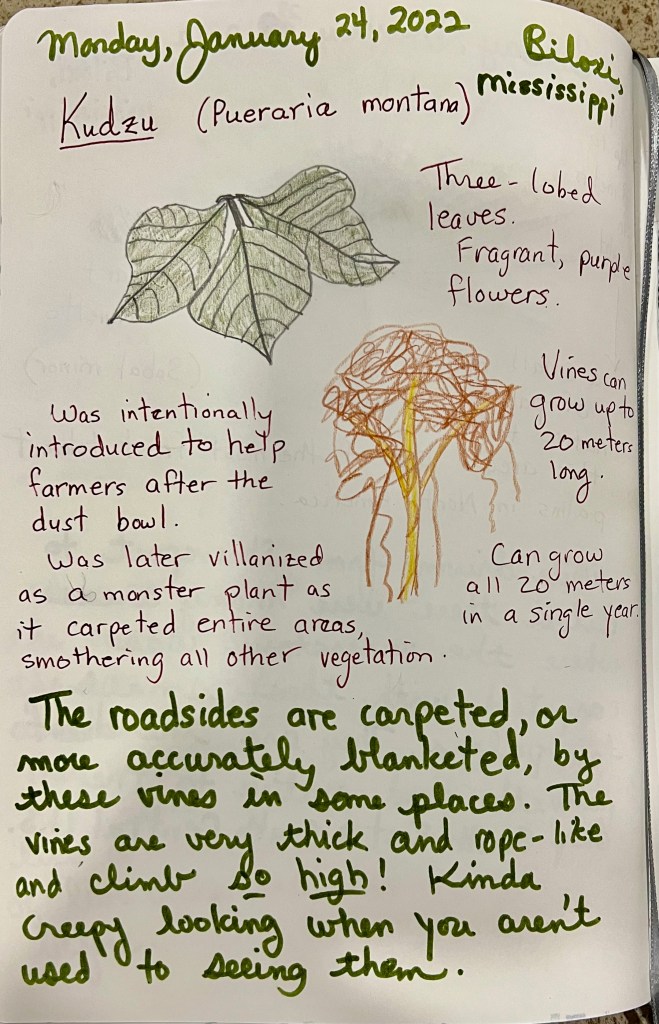 Monday, January 24, 2022
Biloxi,
mississippi
Kudzu (Pueraria montana)
Three-lobed
leaves.
Fragrant, purple
flowers.
Vines can
grow up to
20 meters
long.
Was intentionally
introduced to help
farmers after the
dust bowl.
Was later villanized
as a monster plant as
it carpeted entire areas,
smothering all other vegetation.
Can grow
all 20 meters
in a single year.
The roadsides are carpeted, or
more accurately blanketed, by
these vines in some places. The
vines are very thick and rope-like
and climb so high! Kinda
creepy looking when you aren't
used to seeing them.